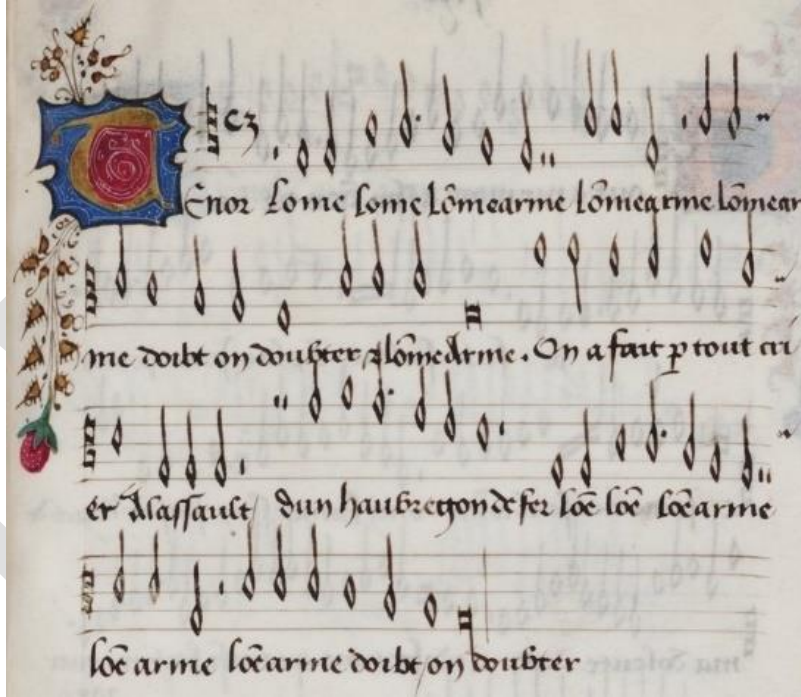 Tenor Lome lome lõmearme lõmearme lõmear
me doibt on doubter lõmearme. On a fait p tout cri
er Alassault dun haubregon de fer lõe lõe lõearme
lõe arme lõearme doibt on doubter